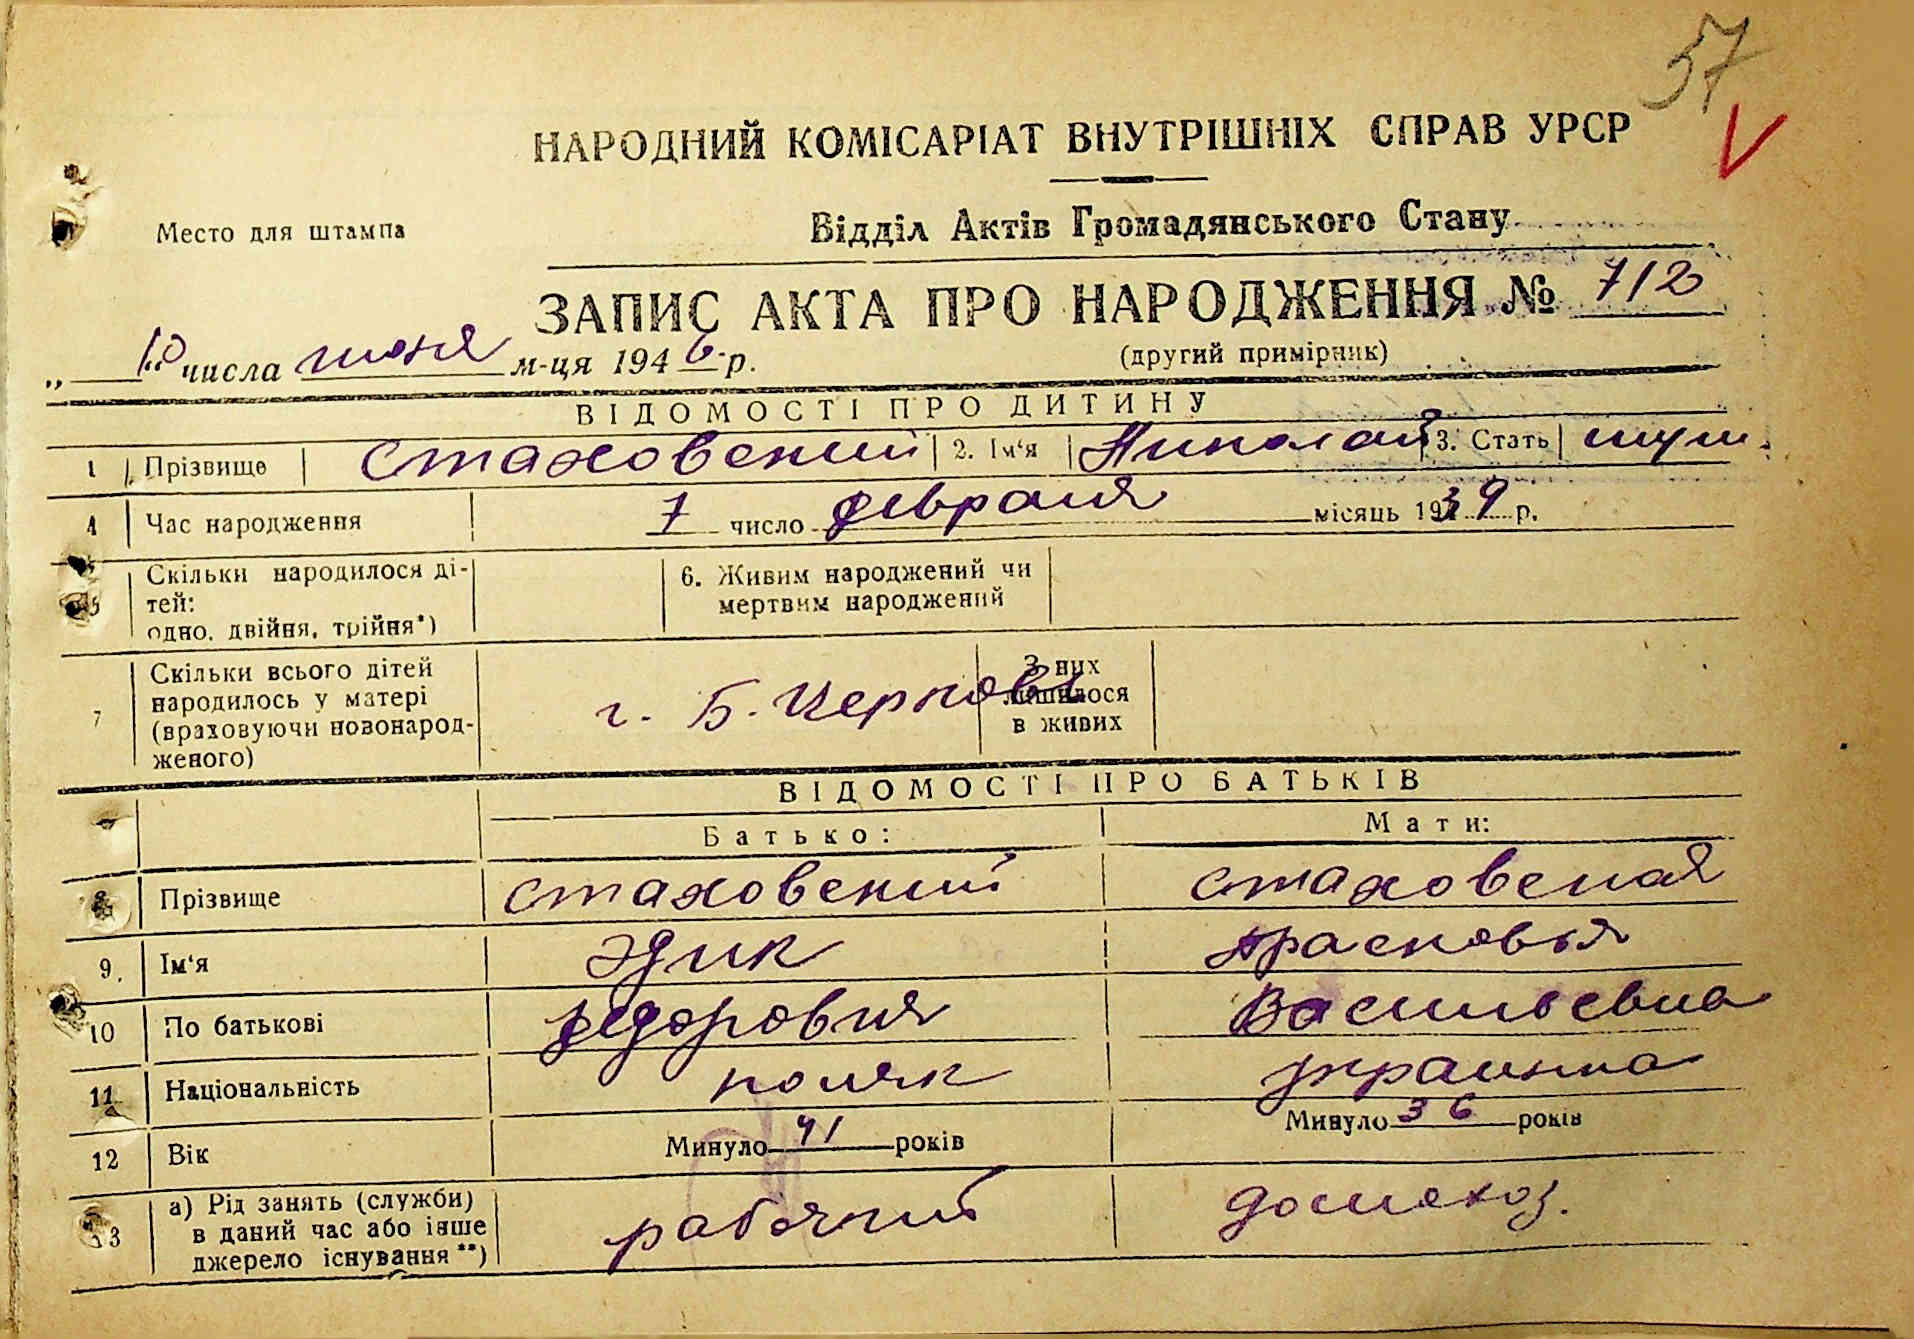 57
НАРОДНИЙ КОМІСАРІАТ ВНУТРІШНІХ СПРАВ УРСР
Место для штампа
Відділ Актів Громадянського Стану
ЗАПИС АКТА ПРО НАРОДЖЕННЯ № 712
„10“ числа июня м-ця 1946 р.
(другий примірник)
ВІДОМОСТІ ПРО ДИТИНУ
1 Прізвище Стаховский 2. Ім‘я Николай 3. Стать муж.
4 Час народження 7 число февраля місяць 1939 р.
5 Скільки народилося ді-
тей:
одно, двійня, трійня*)
6. Живим народжений чи
мертвим народжений
7 Скільки всього дітей
народилось у матері
(враховуючи новонарод-
женого)
г. Б. Церковь
З них
лишилося
в живих
ВІДОМОСТІ ПРО БАТЬКІВ
Батько: Мати:
8 Прізвище Стаховский Стаховская
9. Ім‘я Эдик Прасковья
10 По батькові Федорович Васильевна
11 Національність поляк украинка
12 Вік Минуло 41 років Минуло 36 років
13 а) Рід занять (служби)
в даний час або інше
джерело існування**)
рабочий домохоз.